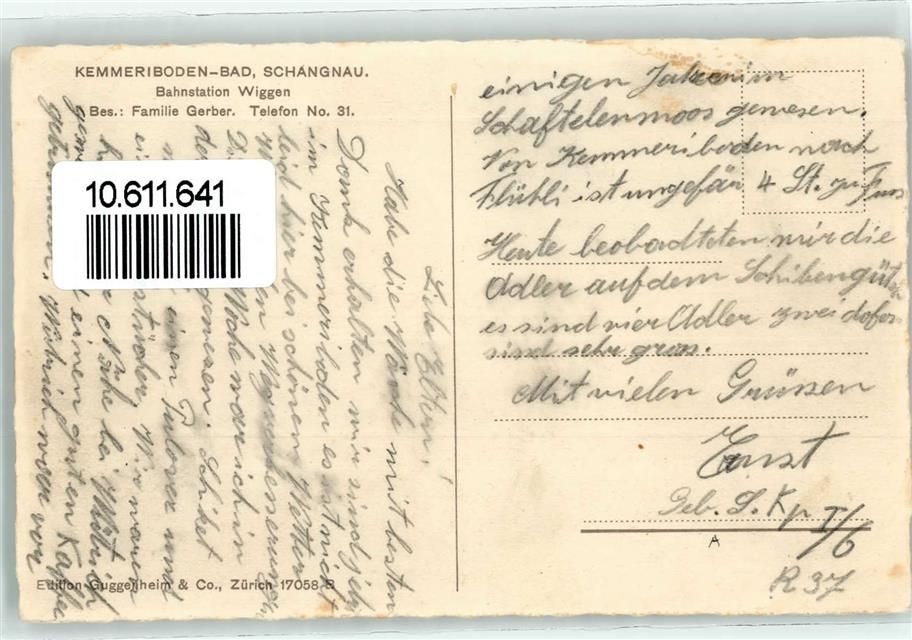 KEMMERIBODEN-BAD, SCHANGNAU.
Bahnstation Wiggen
Bes.: Familie Gerber. Telefon No. 31.
10.611.641
Liebe Eltern!
Habe die Wäsche mit besten
Dank erhalten mir sind jetz
im Kemmeriboden es ist nicht
leid hier bei schönem Wetter
D Woche war ich in
gewesen. Schiket
einen Pulover und
stücher. Wir waren
he bei Wütrich
einem guten Kaffee
getrunken. Wütrich war vor
einigen Jahren im
Schaftelenmoos gewesen.
Von Kemmeriboden nach
Flühli ist ungefär 4 St. zu Fuss
Heute beobachteten mir die
Adler auf dem Schibengütsch
es sind vier Adler zwei dafon
sind sehr gross.
Mit vielen Grüssen
Ernst
Geb. S. Kp I/6
A
R 37
Edition Guggenheim & Co., Zürich 17058 B